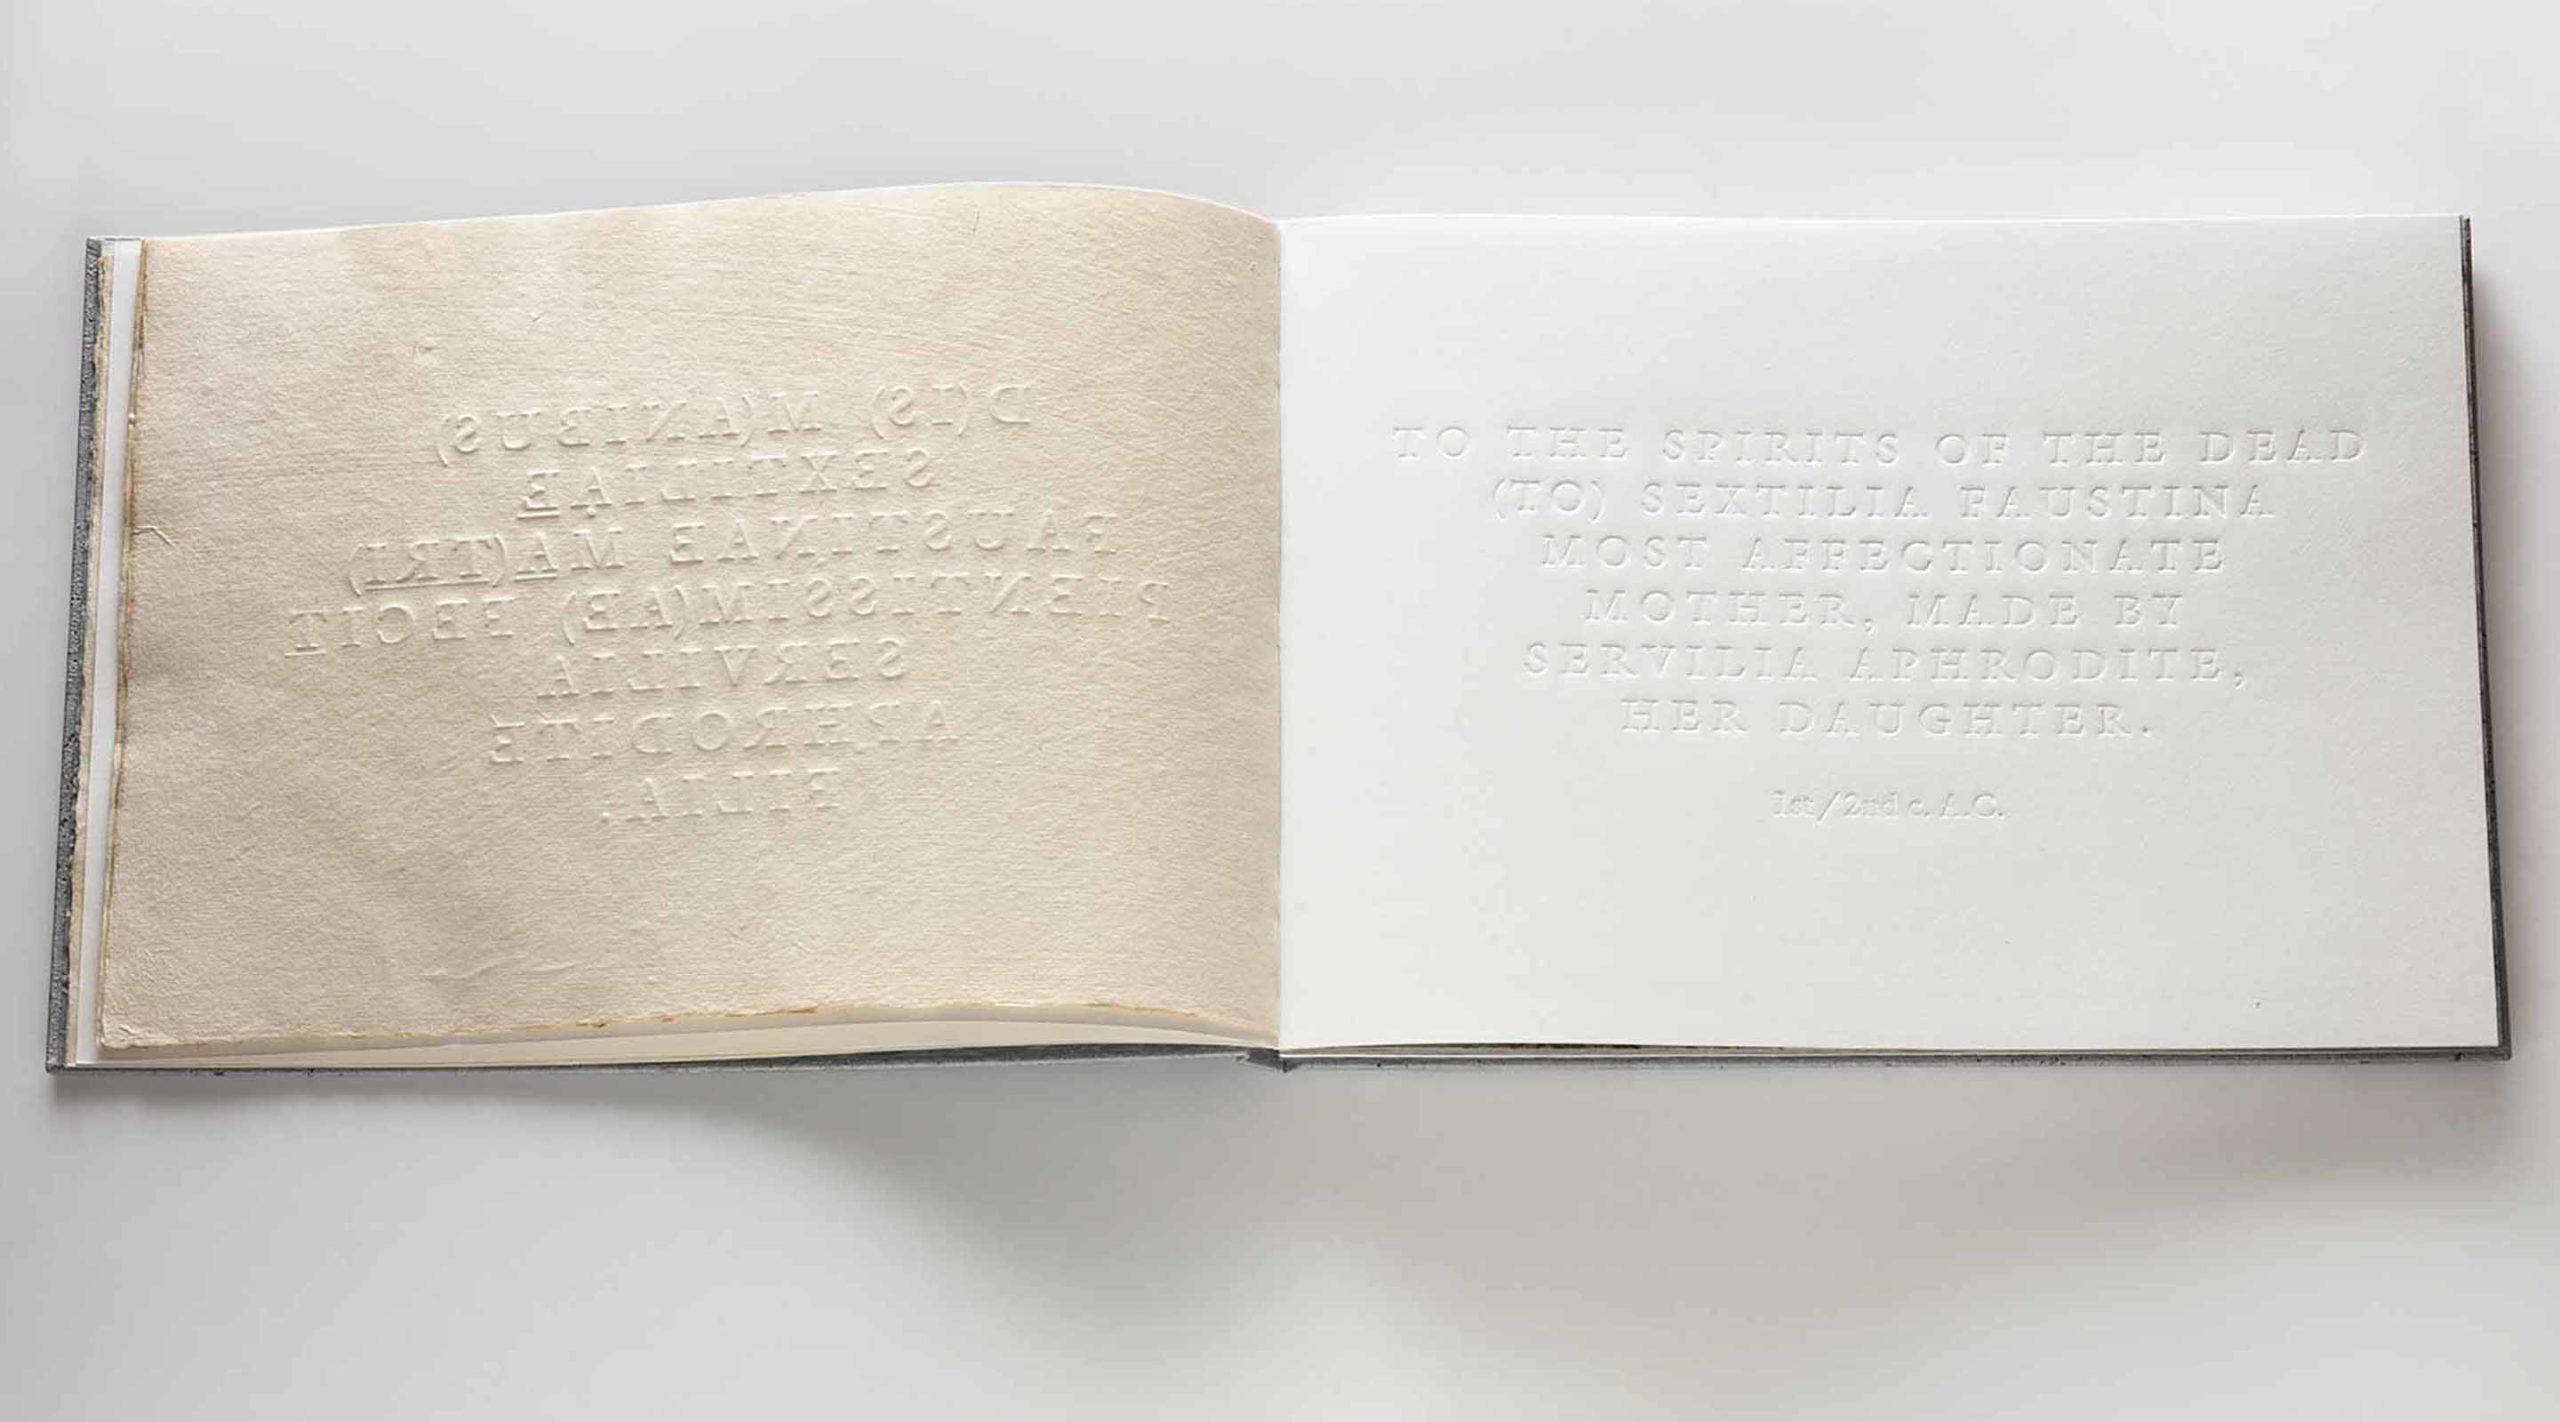 D(IS) M(ANIBUS)
SEXTILIAE
FAUSTINAE MA(TRI)
PIENTISSIM(AE) FECIT
SERVILIA
APHRODITE
FILIA.
TO THE SPIRITS OF THE DEAD
(TO) SEXTILIA FAUSTINA
MOST AFFECTIONATE
MOTHER, MADE BY
SERVILIA APHRODITE,
HER DAUGHTER.
1st/2nd c. A.C.